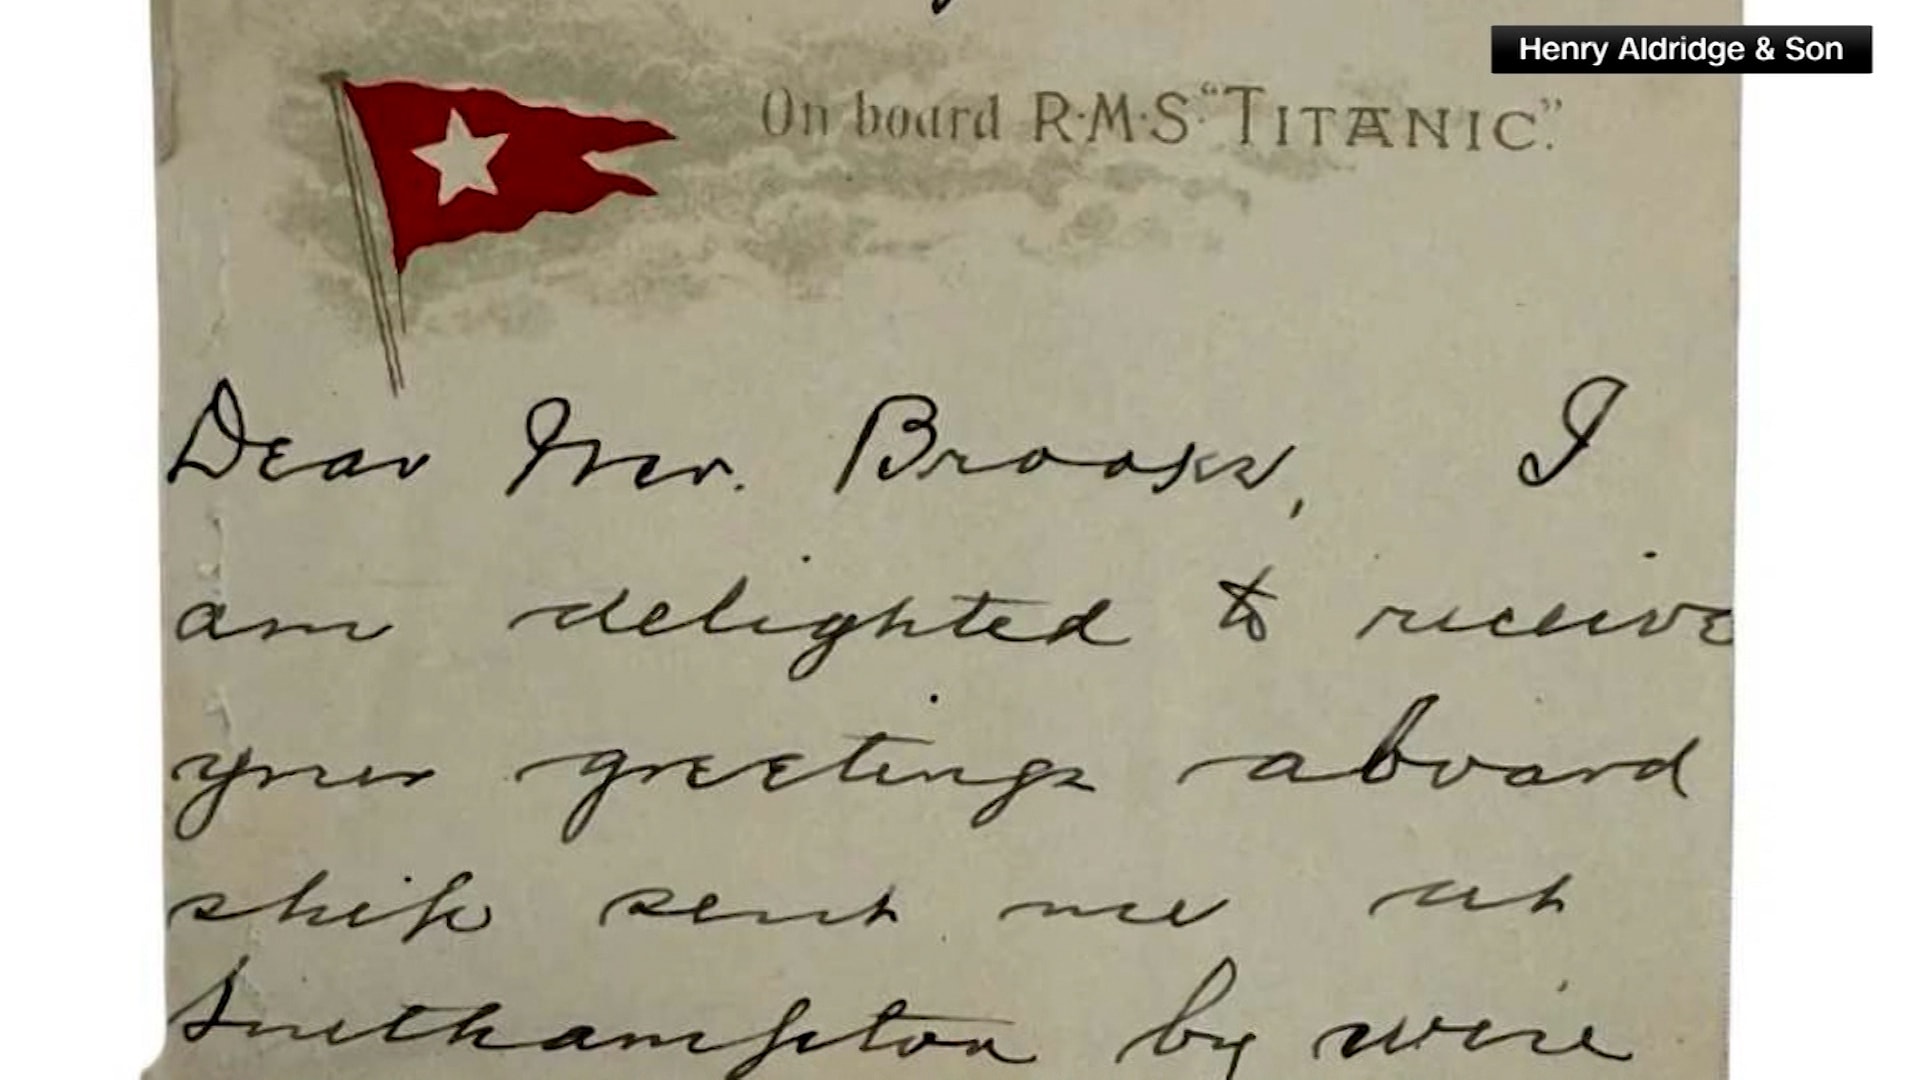 Henry Aldridge & Son
On board R·M·S. "TITANIC".
Dear Mr. Brooks, I
am delighted to receive
your greetings aboard
ship sent me at
Southampton by wire